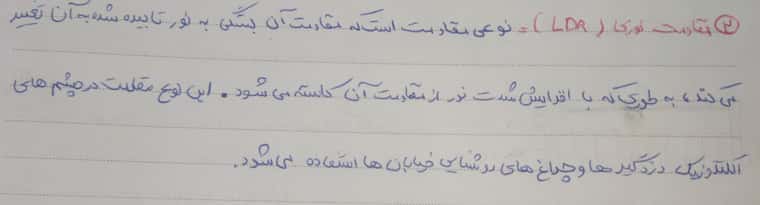 ② مقاومت نوری (LDR) = نوعی مقاومت است که مقاومت آن بستگی به نور تابیده شده به آن تغییر
می کند، به طوری که با افزایش شدت نور از مقاومت آن کاسته می شود. این نوع مقاومت در چشم های
الکترونیک دزدگیر ها و چراغ های روشنایی خیابان ها استفاده می شود.